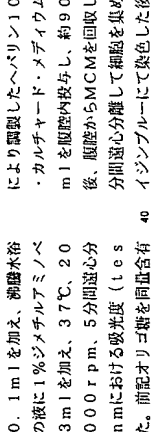 0. 1mlを加え、沸騰水浴
の液に1%ジメチルアミノベ
3mlを加え、37℃、20
000rpm、5分間遠心分
nmにおける吸光度(tes
た。前記オリゴ糖を同量含有
40
により調製したヘパリン10
・カルチャード・メディウム
mlを腹腔内投与し、約90
後、腹腔からMCMを回収し
分間遠心分離して細胞を集め
イジンブルーにて染色した後